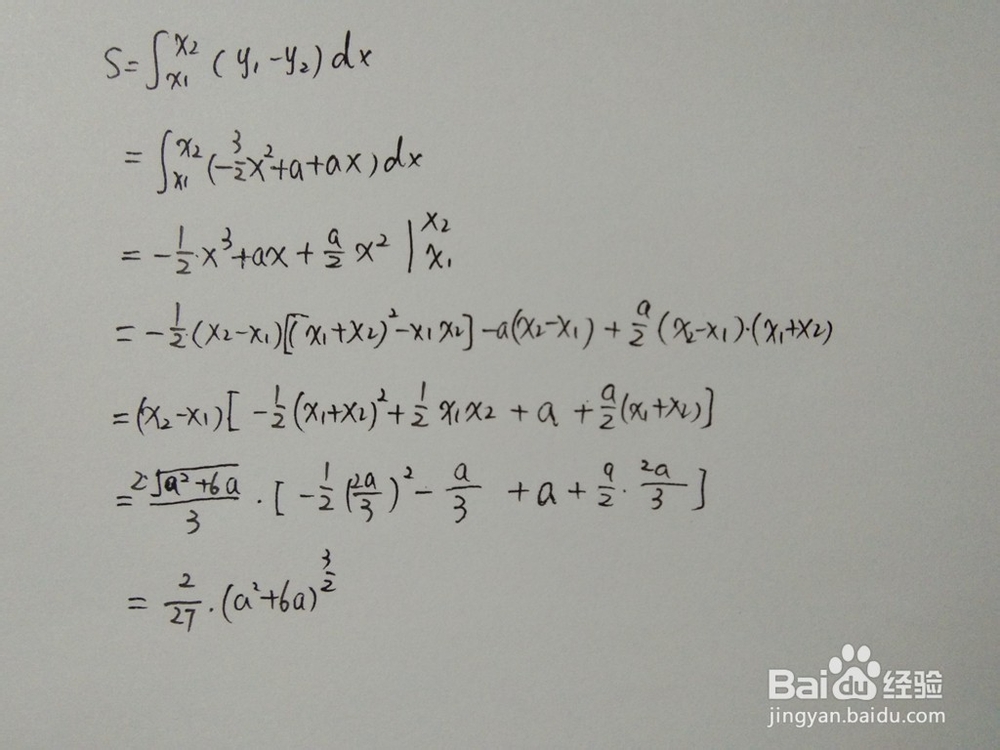 S=∫_{x₁}^{x₂} (y₁-y₂)dx
=∫_{x₁}^{x₂} (-3/2x²+a+ax)dx
=-1/2·x³+ax+a/2 x² |_{x₁}^{x₂}
=-1/2(x₂-x₁)[(x₁+x₂)²-x₁x₂]-a(x₂-x₁)+a/2(x₂-x₁)·(x₁+x₂)
=(x₂-x₁)[-1/2(x₁+x₂)²+1/2 x₁x₂+a+a/2(x₁+x₂)]
=2·√(a²+6a)/3·[-1/2(2a/3)²-a/3+a+a/2·2a/3]
=2/27·(a²+6a)^{3/2}
Baidu经验
jingyan.baidu.com